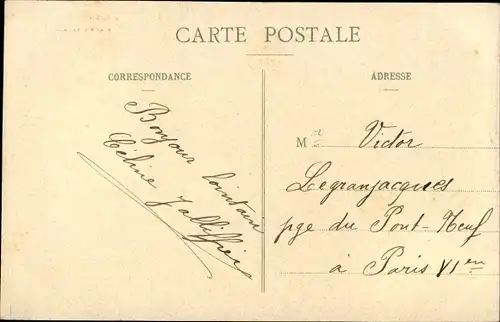 CARTE POSTALE
CORRESPONDANCE
ADRESSE
Bonjour lointain
Céline
Mr Victor
Legranjacques
pge du Pont-Neuf
à Paris VIen